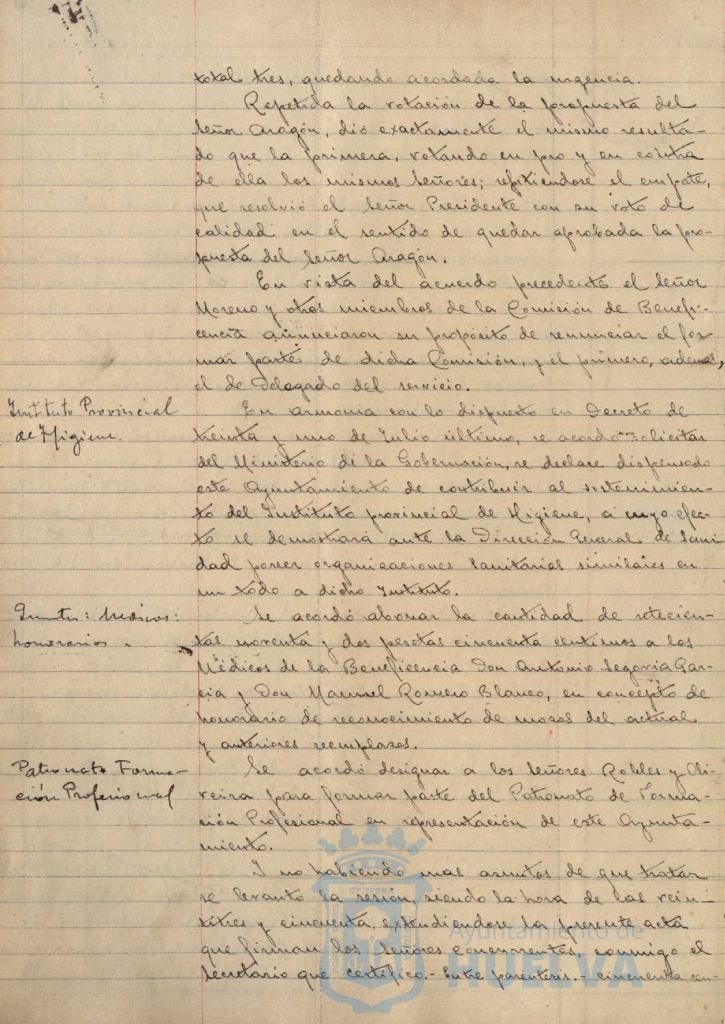 total tres, quedando acordada la urgencia.
Repetida la votación de la propuesta del
Señor Aragón, dió exactamente el mismo resulta-
do que la primera, votando en pro y en contra
de ella los mismos señores; repitiendose el empate,
que resolvió el Señor Presidente con su voto de
calidad en el sentido de quedar aprobada la pro-
puesta del Señor Aragón.
En vista del acuerdo precedente el Señor
Moreno y otros miembros de la Comisión de Benefi-
cencia anunciaron su propósito de renunciar el for-
mar parte de dicha Comisión, y el primero, además,
el de Delegado del servicio.
Instituto Provincial
de Higiene.
En armonia con lo dispuesto en Decreto de
treinta y uno de Julio último, se acordó solicitar
del Ministerio de la Gobernación, se declare dispensado
este Ayuntamiento de contribuir al sostenimien-
to del Instituto provincial de Higiene, a cuyo efec-
to se demostrará ante la Dirección General de Sani
dad poseer organizaciones sanitarias similares en
un todo a dicho Instituto.
Quintas: Médicos:
honorarios.
Se acordó abonar la cantidad de setecien-
tas noventa y dos pesetas cincuenta centimos a los
Médicos de la Beneficencia Don Antonio Segovia Gar-
cia y Don Manuel Romero Blanco, en concepto de
honorario de reconocimiento de mozos del actual
y anteriores reemplazos.
Patronato Forma-
ción Profesional
Se acordó designar a los Señores Robles y Oli-
veira para formar parte del Patronato de Forma-
ción Profesional en representación de este Ayunta-
miento.
Y no habiendo mas asuntos de que tratar
se levantó la sesión, siendo la hora de las vein-
titres y cincuenta, extendiendose la presente acta
que firman los Señores concurrentes, conmigo el
Secretario que certifico.- Entre parentesis.- cincuenta cen-
Ayuntamiento de
HUELVA